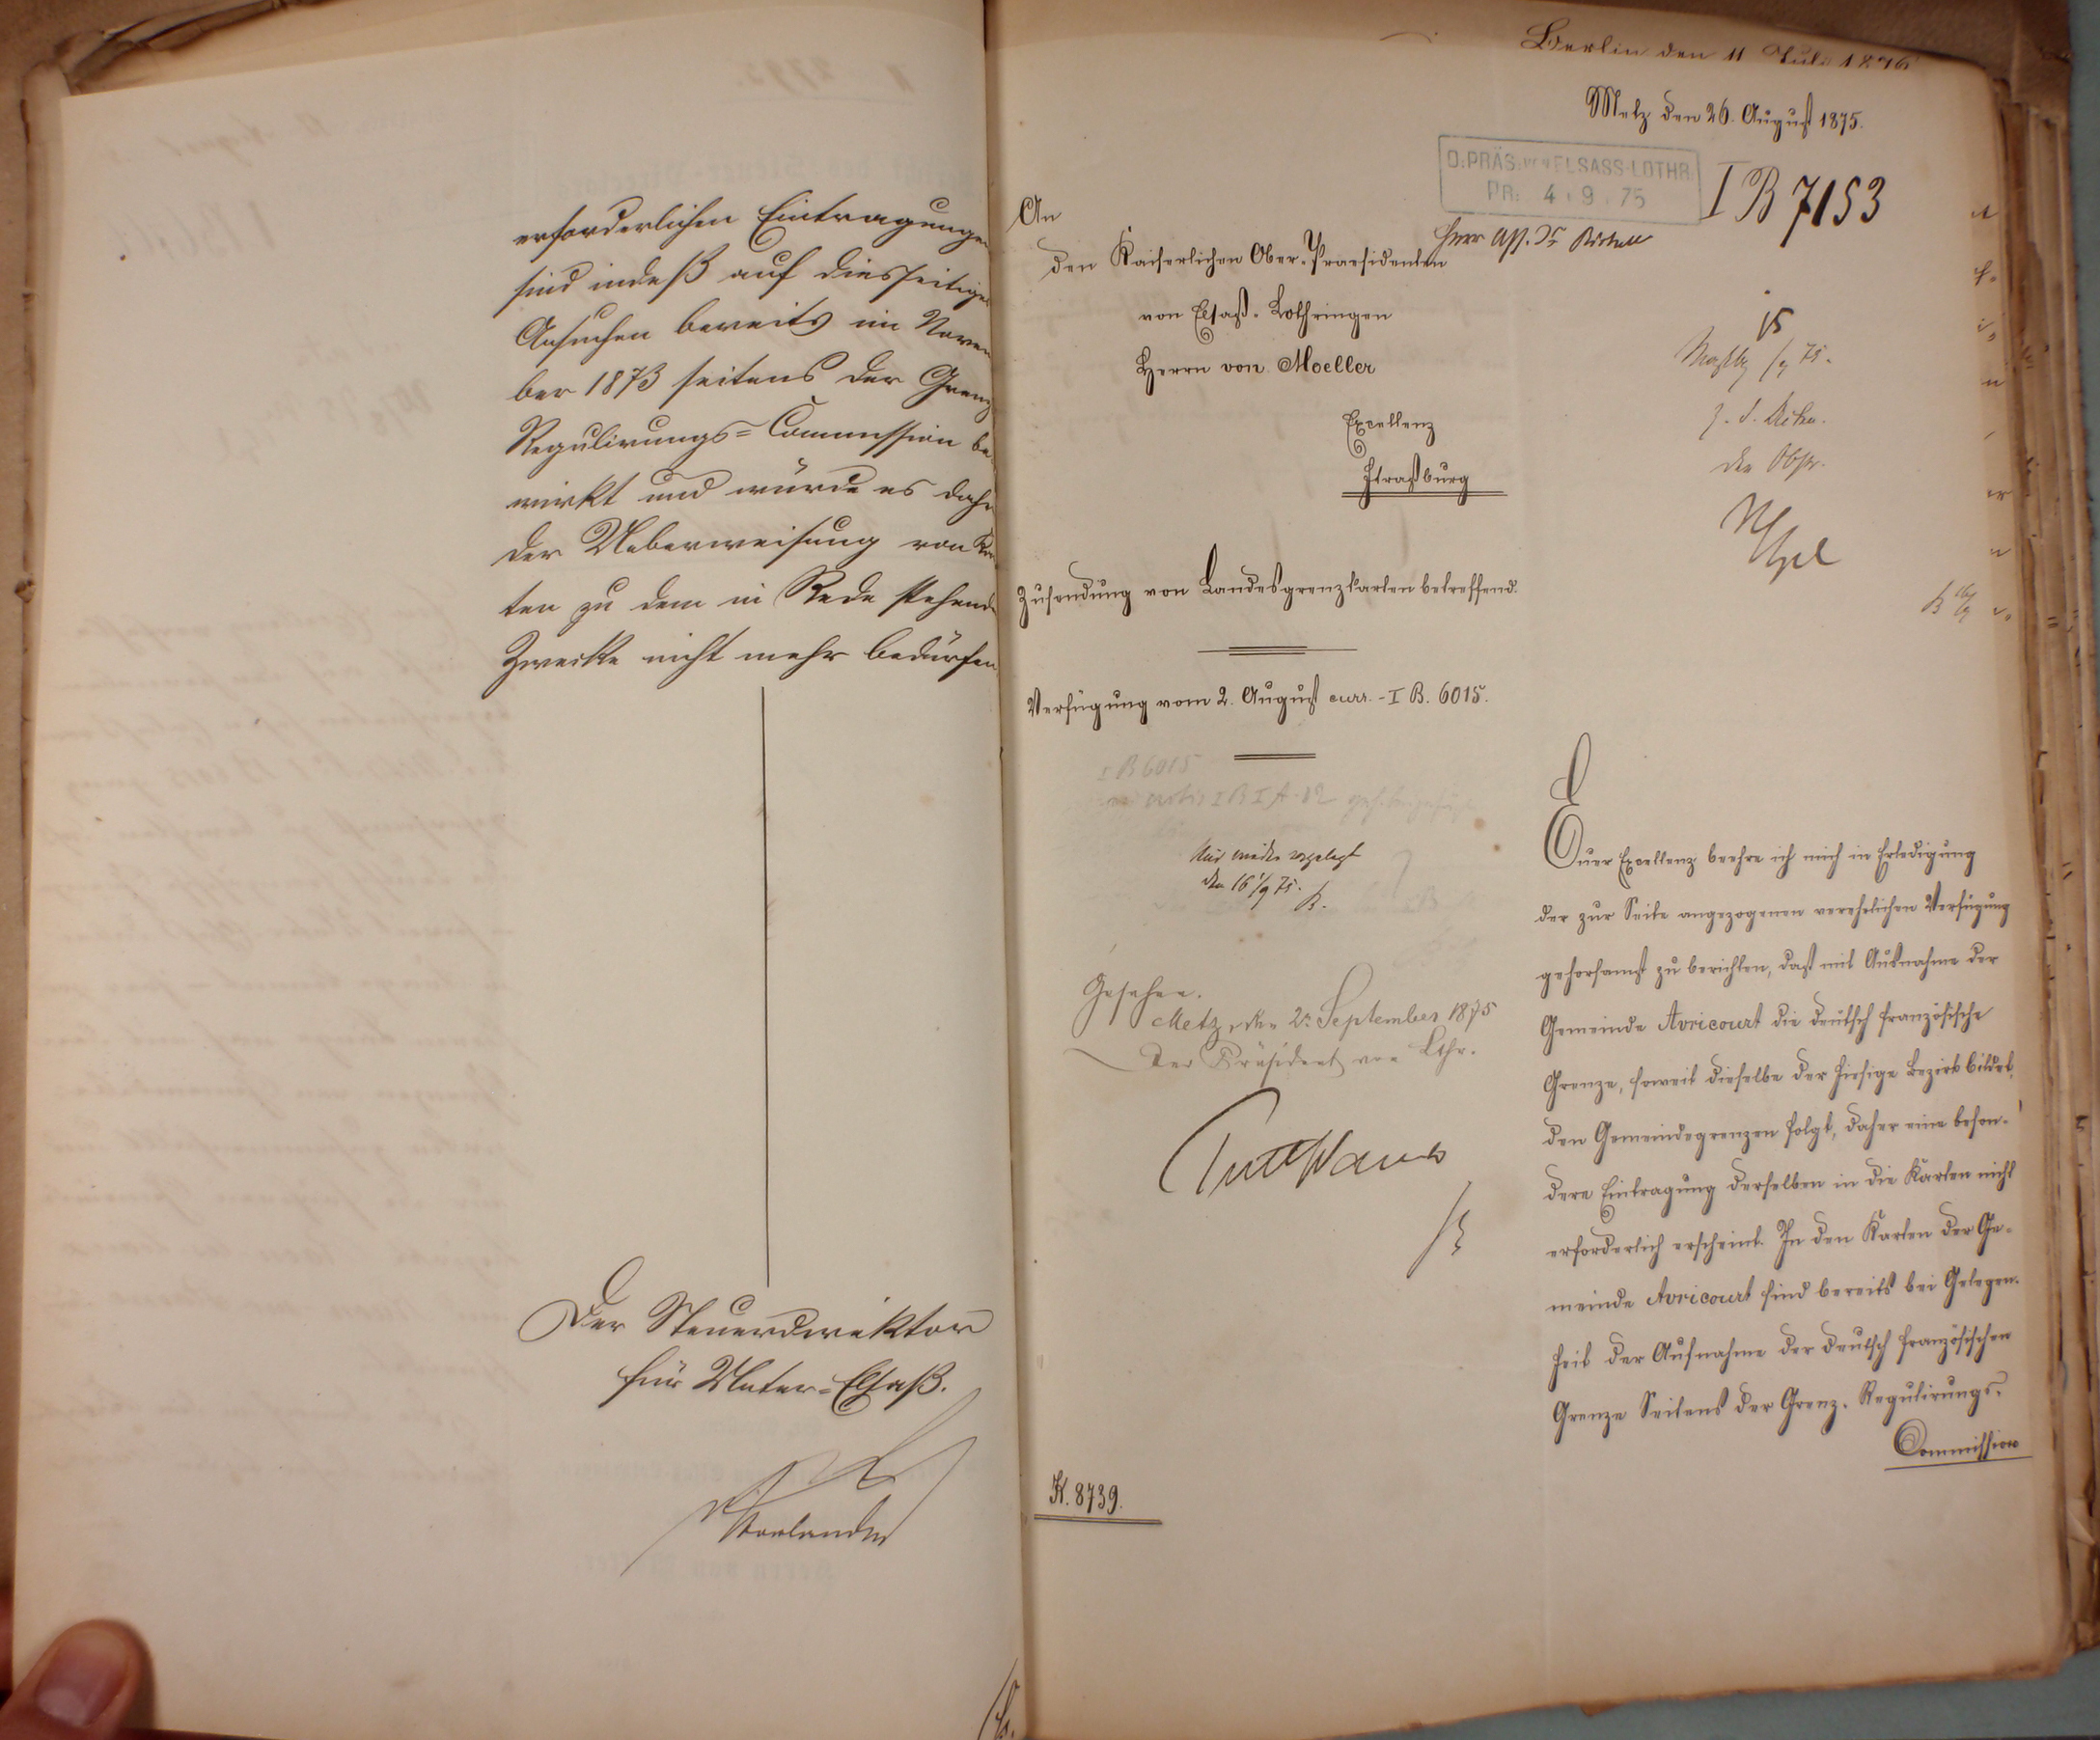 erforderlichen Eintragungen
sind indeß auf diesseitiges
Ansuchen bereits im Novem
ber 1873 seitens der Grenz
Regulirungs=Commission be
wirkt und würde es daher
der Ueberweisung von Kar
ten zu dem in Rede stehenden
Zwecke nicht mehr bedürfen
Der Steuerdirektor
für Unter=Elsaß.
Berlin den 11 Juli 1876
Metz den 26. August 1875.
O.PRÄS. VON ELSASS-LOTHR.
PR: 4.9.75
I B 7153
An
den Kaiserlichen Ober-Praesidenten
von Elsaß-Lothringen
Herrn von Moeller
Excellenz
Straßburg
Herr Ass. Dr
z. d. Akten.
Der Obpr.
Zusendung von Landesgrenzkarten betreffend.
Verfügung vom 2. August curr. - I B. 6015.
I B 6015
Mir wieder vorgelegt
den 16/9 75.
Gesehen.
Metz, den 2. September 1875
Der Präsident von Lthr.
K. 8739.
Euer Excellenz beehre ich mich in Erledigung
der zur Seite angezogenen verehrlichen Verfügung
gehorsamst zu berichten, daß mit Ausnahme der
Gemeinde Avricourt die deutsch französische
Grenze, soweit dieselbe der hiesige Bezirk bildet,
den Gemeindegrenzen folgt, daher eine beson-
dere Eintragung derselben in die Karten nicht
erforderlich erscheint. In den Karten der Ge-
meinde Avricourt sind bereits bei Gelegen-
heit der Aufnahme der deutsch französischen
Grenze Seitens der Grenz-Regulirungs-
Commission